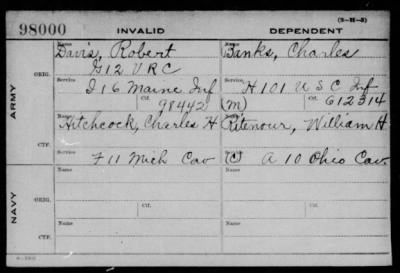 (3-M-3)
98000 INVALID DEPENDENT
Name Name
Davis, Robert Banks, Charles
G 12 V R C
ORIG. Service Ctf. Service Ctf.
I 16 Maine Inf H 101 U S C Inf
98442) (M) 612314
ARMY
Name Name
Hitchcock, Charles H Ritenour, William H
CTF. Service Service
F 11 Mich Cav (C) A 10 Ohio Cav
Name Name
ORIG. Service Ctf. Service Ctf.
NAVY
Name Name
CTF. Service Service